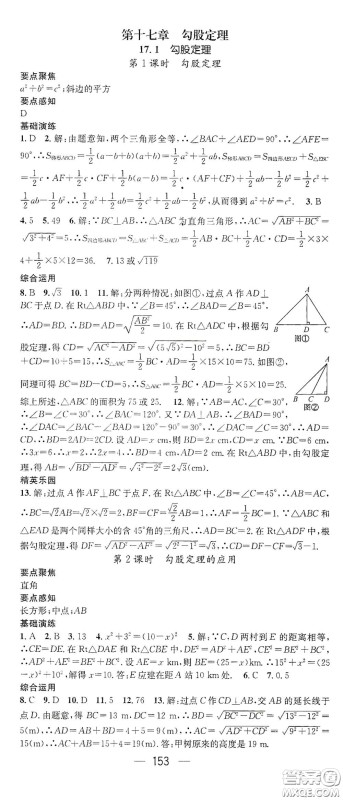 第十七章 勾股定理
17.1 勾股定理
第1课时 勾股定理
要点聚焦
a²+b²=c²;斜边的平方
要点感知
D
基础演练
1.D 2.解:由题意知,两个三角形全等,∴∠BAC+∠AED=90°,∴∠AFE=
90°,∴S梯形ABCD=½(a+b+b)(a+b)=½a²+
4.5 5.49 6.解:∵BC⊥AB,∴△ABC为直角三角形,∴AC=√(AB²+BC²)=
√(3²+4²)=5,∴S四边形ABCD=S△ABC+S△ACD=½AB·BC+½AC·CD=½×3×
4+½×5×12=36. 7.13或√119
综合运用
8.B 9.√3 10.1 11.解:分两种情况:如图①,过点A作AD⊥
BC于点D.在Rt△ABD中,∵∠B=45°,∴∠B=∠BAD=45°,
∴AD=BD.∴AD=√(AB²/2)=10.在Rt△ADC中,根据勾
股定理,得CD=√(AC²-AD²)=√((5√5)²-10²)=5.∴BC=BD
+CD=10+5=15,∴S△ABC=½BC·AD=½×15×10=75.如图②,
同理可得BC=BD-CD=5,∴S△ABC=½BC·AD=½×5×10=25.
综上所述,△ABC的面积为75或25. 12.解:∵AB=AC,∠C=30°,
∴∠B=∠C=30°,∴∠BAC=120°.又∵DA⊥AB,∴∠BAD=90°,
∴∠DAC=∠BAC-∠BAD=120°-90°=30°,∴∠DAC=∠C=30°,∴AD=
CD.∴BD=2AD=2CD.设AD=x cm,则BD=2x cm,CD=x cm.∵BC=6 cm,
∴3x=6,∴x=2,∴BD=4 cm,AD=2 cm.在Rt△ABD中,由勾股定
理,得AB=√(BD²-AD²)=√(4²-2²)=2√3(cm).
精英乐园
13.解:过点A作AF⊥BC于点F.在Rt△ABC中,∠B=45°,∵AB=AC,
∴BC=√2AB=2,BF=AF=
△EAD是两个同样大小的含45°角的三角尺,∴AD=BC=2.在Rt△ADF中,
根据勾股定理,得DF=√(AD²-AF²)=√(2²-1²)=√3,∴CD=DF-CF=√3-1.
第2课时 勾股定理的应用
要点聚焦
直角
要点感知
长方形;中点;AB
基础演练
1.A 2.B 3.13 4.x²+3²=(10-x)² 5.解:∵C,D两村到E的距离相等,
∴CE=DE.在Rt△DAE和Rt△CBE中,DE²=AD²+AE²,CE²=BE²+BC²,
∴AD²+AE²=BE²+BC².设AE=x km,则BE=(25-x)km.∴15²+x²=(25-
x)²+10²,解得x=10.答:E应建在距A站10 km处. 6.C 7.0.5
综合运用
8.C 9.C 10.D 11.5 12.76 13.解:过点C作CD⊥AB,交AB的延长线
于点D.由题意,得BC=13 m,DC=12 m,∴BD=√(BC²-DC²)=√(13²-12²)=
5(m),∴AD=AB+BD=4+5=9(m),∴AC=√(AD²+CD²)=√(9²+12²)=
15(m),∴AC+AB=15+4=19(m).答:甲树原来的高度是19 m.
图①
图②
153